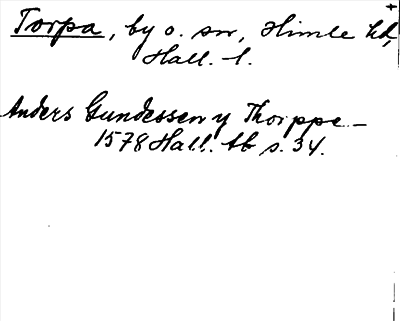 Torpa, by o. sn, Himle hd,
Hall. l.
Anders Gundessen y Thorppe —
1578 Hall. tb s. 34.